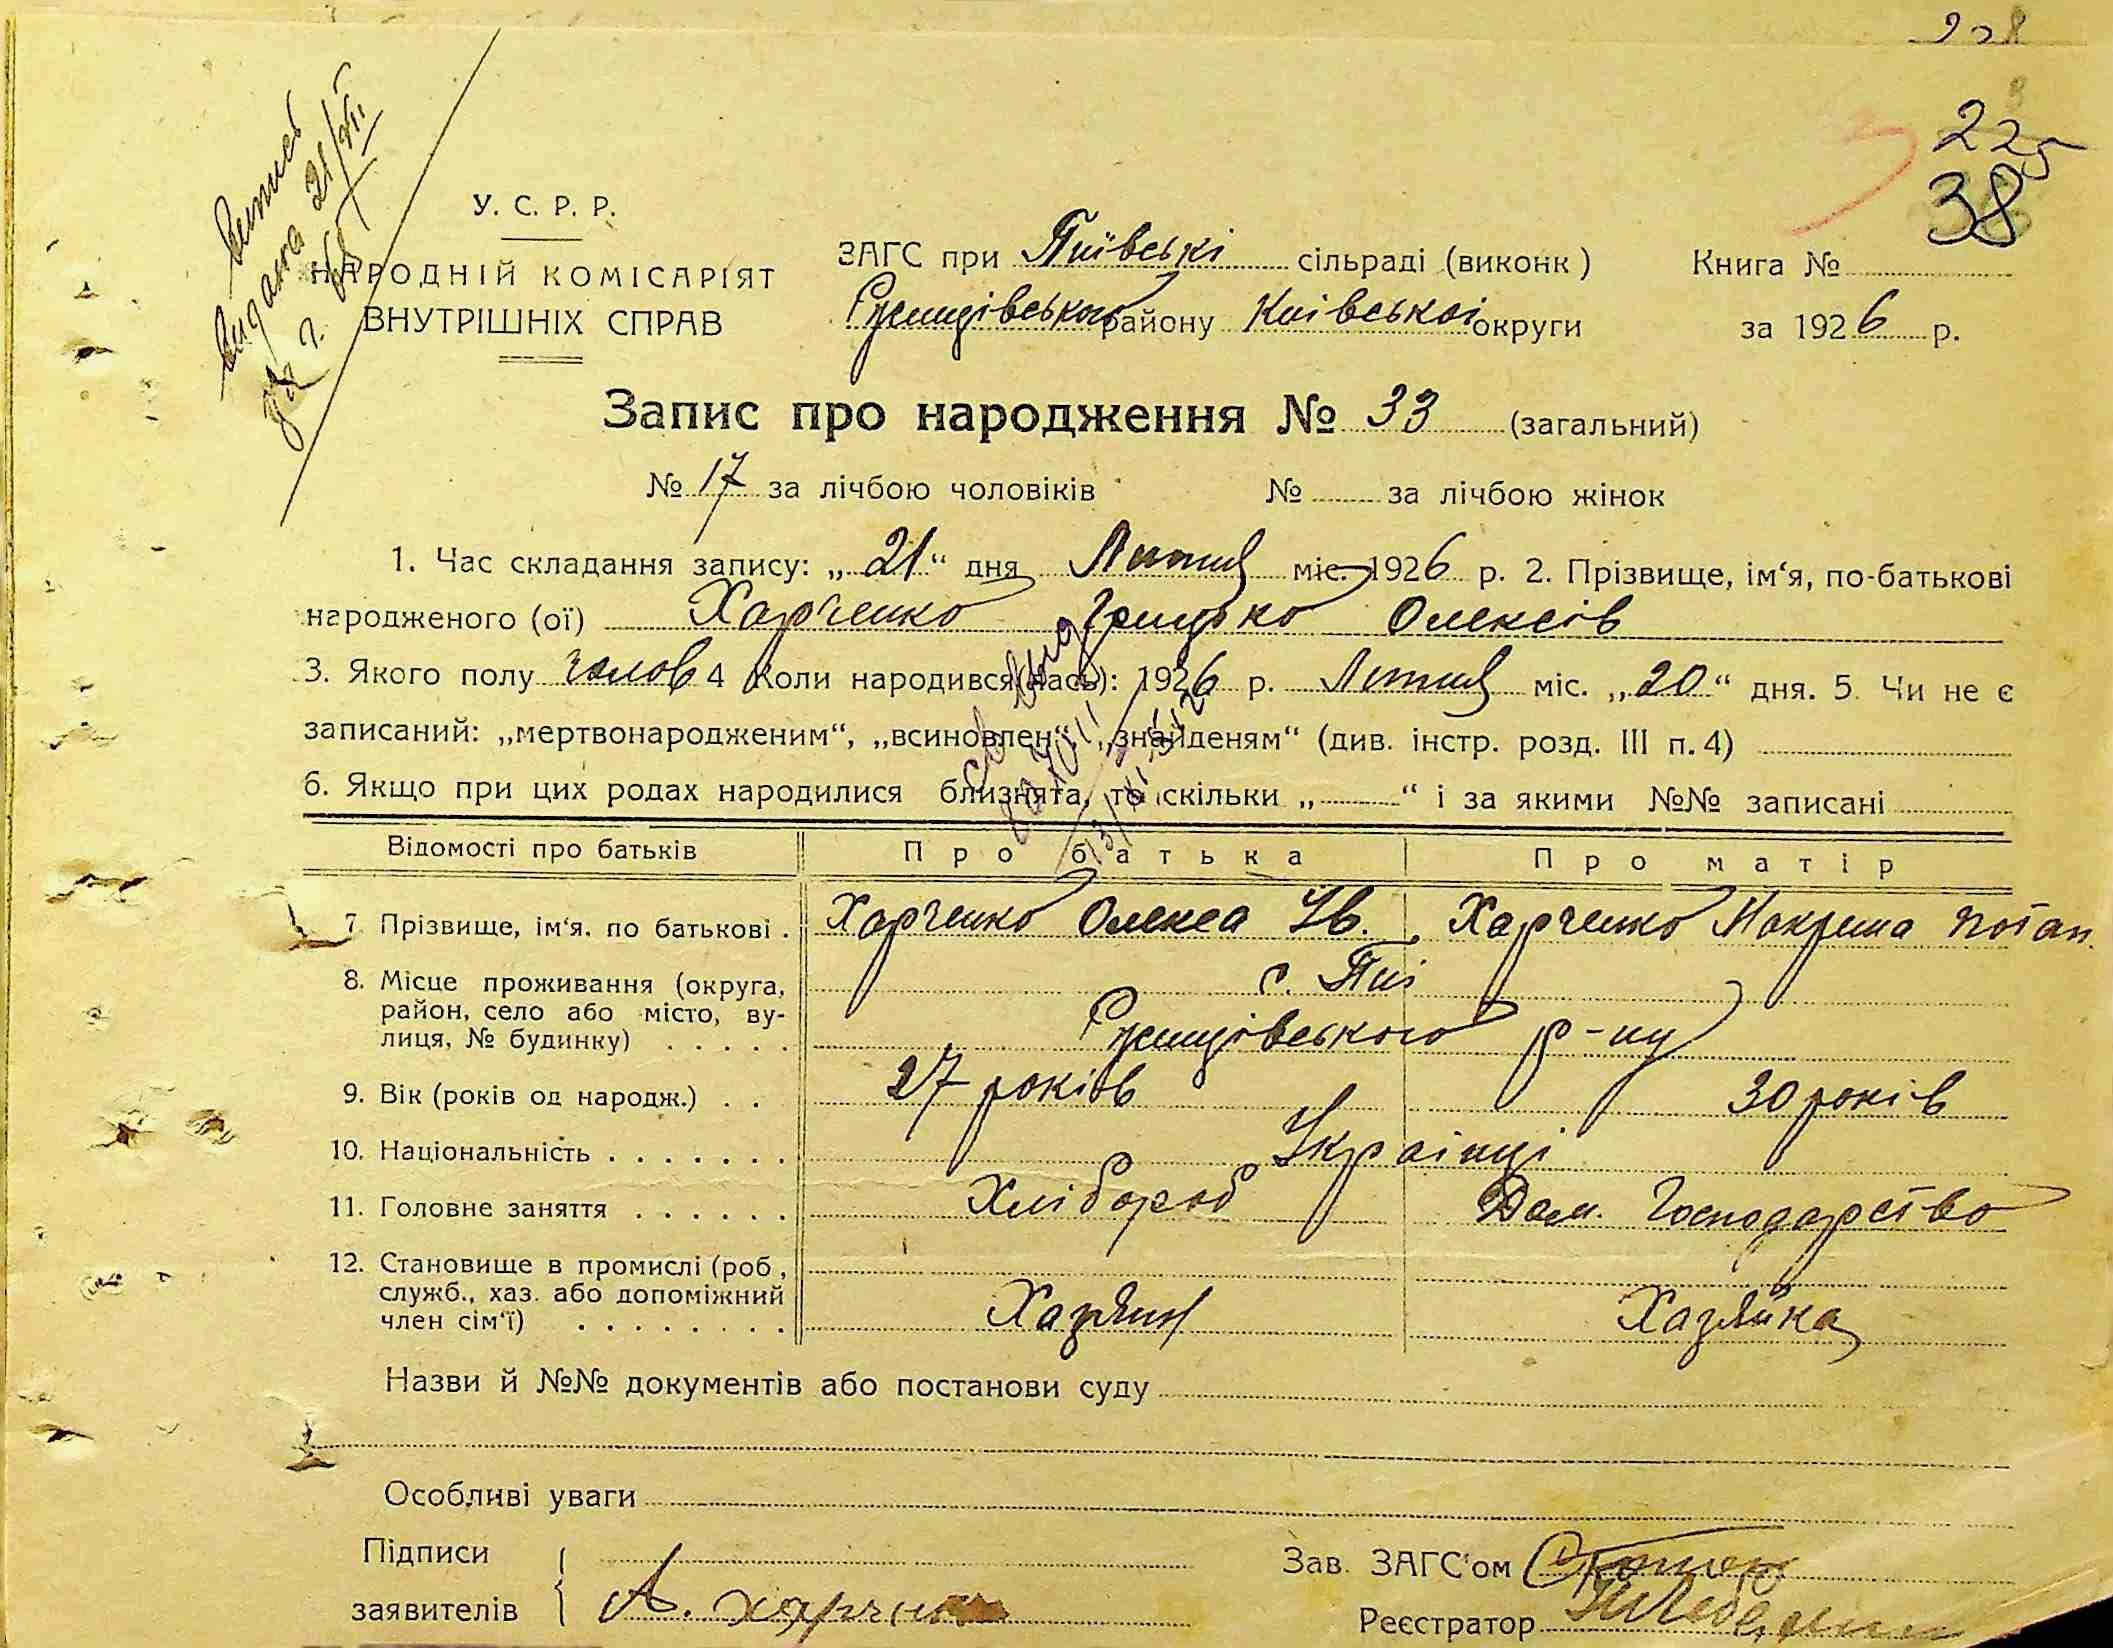 225
38
Витяг
видано 21/VII
У. С. Р. Р.
НАРОДНІЙ КОМІСАРІЯТ
ВНУТРІШНІХ СПРАВ
ЗАГС при Пиївські сільраді (виконк)
Ржищівського району Київськоі округи
Книга №
за 1926 р.
Запис про народження № 33 (загальний)
№ 17 за лічбою чоловіків № за лічбою жінок
1. Час складання запису: „21“ дня Лютня міс. 1926 р. 2. Прізвище, ім‘я, по-батькові
народженого (ої) Харченко Грицько Олексів
3. Якого полу чолов 4 Коли народився(лась): 1926 р. Лютня міс. „20“ дня. 5. Чи не є
записаний: „мертвонародженим“, „всиновлен“ „знайденям“ (див. інстр. розд. III п. 4)
6. Якщо при цих родах народилися близнята, то скільки „ “ і за якими №№ записані
Відомості про батьків Про батька Про матір
7. Прізвище, ім‘я, по батькові . Харченко Олекса Ів. Харченко Мокрина Потап.
8. Місце проживання (округа, с. Пиї
район, село або місто, ву-
лиця, № будинку) . . . . . Ржищівського р-ну
9. Вік (років од народж.) . . 27 років 30 років
10. Національність . . . . . . . Украінці
11. Головне заняття . . . . . . Хлібороб Дом. Господарство
12. Становище в промислі (роб.,
служб., хаз. або допоміжний
член сім‘ї) . . . . . . . . Хазяин Хазяйка
Назви й №№ документів або постанови суду
Особливі уваги
Підписи
заявителів А. Харченко
Зав. ЗАГС‘ом
Реєстратор